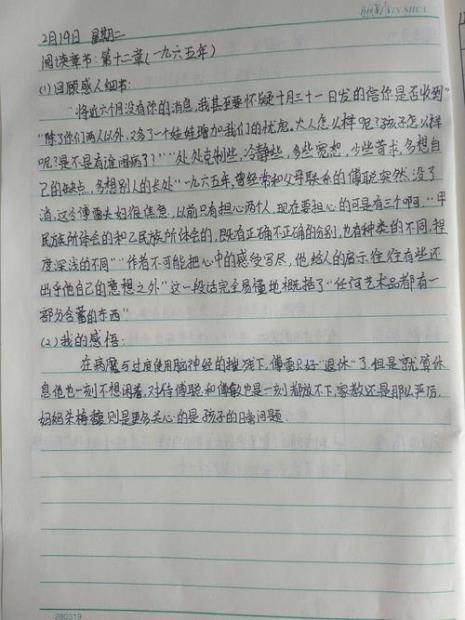 2月19日 星期二
阅读章节:第十二章(一九六五年)
(1)回顾感人细节:
"将近六个月没有你的消息,我甚至要怀疑十月三十一日发的信你是否收到"
"除了你们两人以外,又多了一个娃娃增加我们的忧虑。大人怎么样呢?孩子怎么样
呢?是不是有谁闹病了?""处处克制些,冷静些,多些宽恕,少些苛求,多想自
己的缺点,多想别人的长处"一九六五年,曾经常和父母联系的傅聪突然没了
消,这令傅雷夫妇很焦急,以前只有担心两个人,现在要担心的可是有三个啊。"甲
民族所体会的和乙民族所体会的,既有正确不正确的分别,也有种类的不同,程
度深浅的不同""作者不可能把心中的感受写尽,他给人的启示往往有些还
出乎他自己的意想之外"这一段话完全易懂地概括了"任何艺术品都有一
部分含蓄的东西"
(2)我的感悟:
在病魔与过度使用脑神经的摧残下,傅雷只好"退休"了,但是就算休
息他也一刻不想闲着,对待傅聪和傅敏也是一刻都放不下,家教还是那么严厉,
妈妈朱梅馥则是更多关心的是孩子的日常问题.
280319